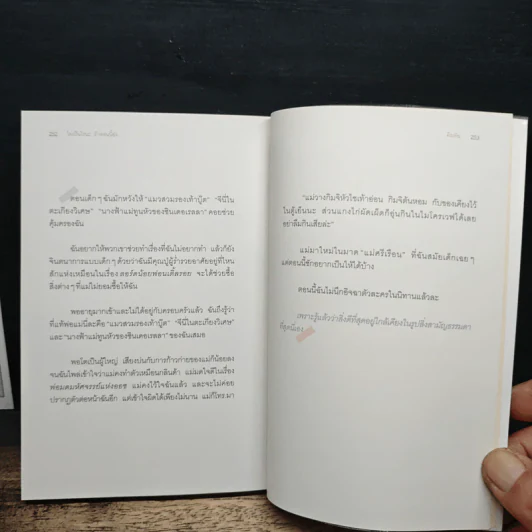 252
ตอนเด็กๆ ฉันมักหวังให้ "แมวสวมรองเท้าบู๊ต" "จีนี่ใน
ตะเกียงวิเศษ" "นางฟ้าแม่ทูนหัวของซินเดอเรลลา" คอยช่วย
คุ้มครองฉัน
ฉันอยากให้พวกเขาช่วยทำเรื่องที่ฉันไม่อยากทำ แล้วก็ยัง
จินตนาการแบบเด็กๆ ด้วยว่าฉันมีคุณปู่ผู้ร่ำรวยอาศัยอยู่ที่ไหน
สักแห่งเหมือนในเรื่อง ลอร์ดน้อยฟอนเติ้ลรอย จะได้ช่วยซื้อ
สิ่งต่างๆ ที่แม่ไม่ยอมซื้อให้ฉัน
พออายุมากเข้าและไม่ได้อยู่กับครอบครัวแล้ว ฉันถึงรู้ว่า
ที่แท้พ่อแม่นี่ละคือ "แมวสวมรองเท้าบู๊ต" "จีนี่ในตะเกียงวิเศษ"
และ "นางฟ้าแม่ทูนหัวของซินเดอเรลลา" ของฉันเสมอ
พอโตเป็นผู้ใหญ่ เสียงบ่นกับการก้าวก่ายของแม่ก็น้อยลง
จนฉันไพล่เข้าใจว่าแม่คงทำตัวเหมือนกลินด้า แม่มดใจดีในเรื่อง
พ่อมดมหัศจรรย์แห่งออซ แม่คงไว้ใจฉันแล้ว และจะไม่ค่อย
ปรากฏตัวต่อหน้าฉันอีก แต่เข้าใจผิดได้เพียงไม่นาน แม่ก็โทร.มา
253
"แม่วางกิมจิหัวไชเท้าอ่อน กิมจิต้นหอม กับของเคียงไว้
ในตู้เย็นนะ ส่วนแกงไก่ผัดเผ็ดก็อุ่นกินในไมโครเวฟได้เลย
อย่าลืมกินเสียล่ะ"
แม่มาใหม่ในมาด "แม่ครีเรือน" ที่ฉันสมัยเด็กเฉยๆ
แต่ตอนนี้ชักอยากเป็นให้ได้บ้าง
ตอนนี้ฉันไม่นึกอิจฉาตัวละครในนิทานแล้วละ
เพราะรู้แล้วว่าสิ่งดีที่สุดอยู่ใกล้เคียงในรูปสิ่งสามัญธรรมดา
ที่สุดนี่เอง